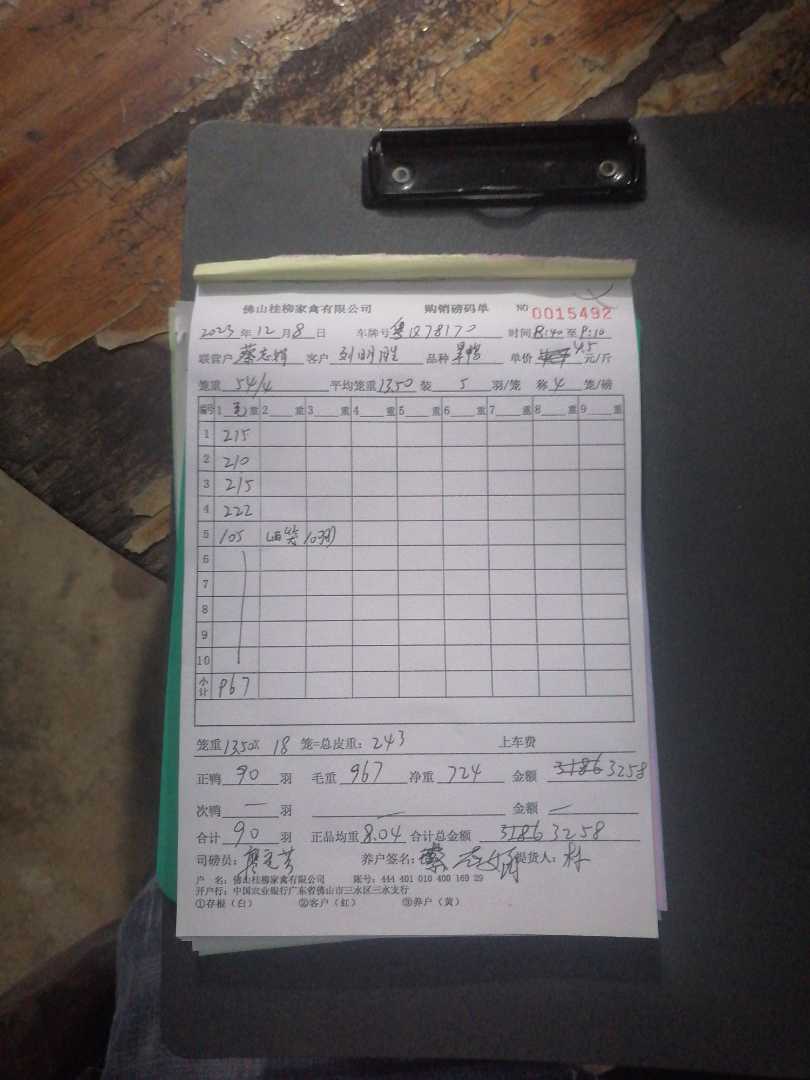 佛山桂柳家禽有限公司 购销磅码单 NO 0015492
2023年12月8日 车牌号 粤Q78170 时间8:40至9:10
联营户 蔡志娟 客户 刘明胜 品种 单价 4.5 元/斤
笼重 54/4 平均笼重 13.50 装 5 羽/笼 称 4 笼/磅
编号 1 毛 重 2 重 3 重 4 重 5 重 6 重 7 重 8 重 9 重
1 215
2 210
3 215
4 222
5 105 (两笼10羽)
6
7
8
9
10
小计 967
笼重 13.50x 18 笼=总皮重: 243 上车费
正鸭 90 羽 毛重 967 净重 724 金额 3186 3258
次鸭 — 羽 — 金额 —
合计 90 羽 正品均重 8.04 合计总金额 3186 3258
司磅员: 养户签名: 蔡志娟 提货人:
户 名: 佛山桂柳家禽有限公司 账号: 444 401 010 400 169 29
开户行: 中国农业银行广东省佛山市三水区三水支行
①存根(白) ②客户(红) ③养户(黄)